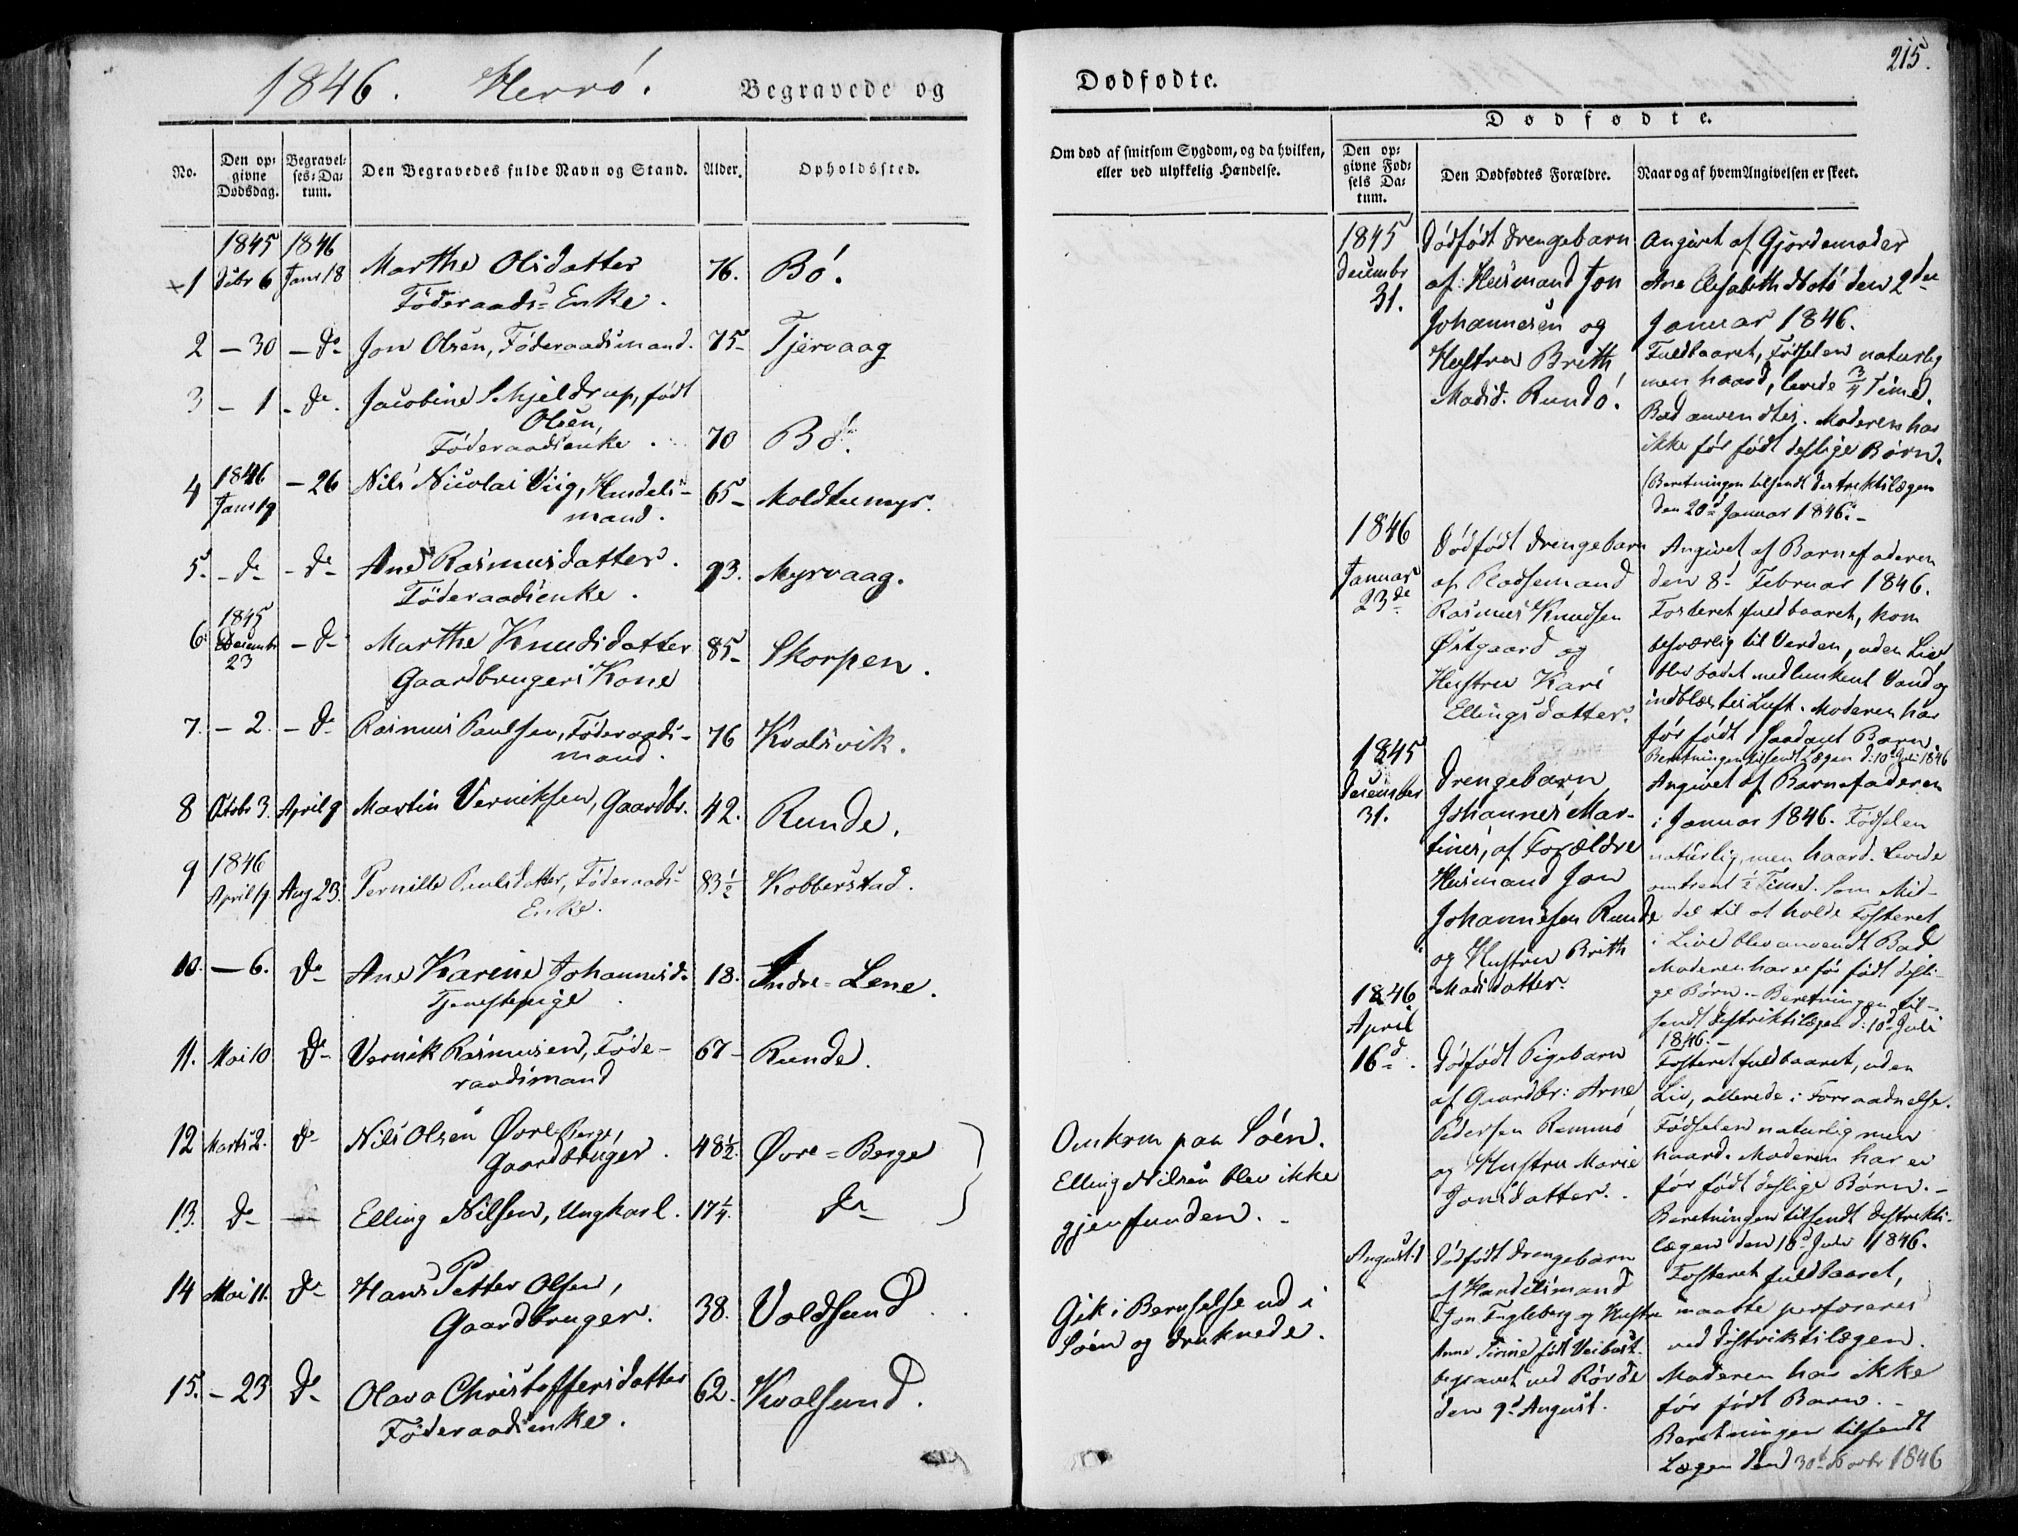 1846. Herrö. Begravede og
No.
Den opgivne Dødsdag.
Begravelses-Datum.
Den Begravedes fulde Navn og Stand.
Alder.
Opholdssted.
1845 1846
+1 Debr 6 Janr 18 Marthe Olsdatter 76. Bö.
Föderaads-Enke.
2 – 30 – do Jon Olsen, Föderaadsmand. 75– Tjervaag
3 – 1 – do Jacobine Schjeldrup, født
Olsen,
Föderaadsenke. 70 Bö.
1846
4 Janr 19 – 26 Nils Nicolai Viig, Handels-
mand. 65– Moldtumyr.
5. – do – do Ane Rasmusdatter. 93. Myrvaag.
Föderaadsenke.
1845
6. Decembr 23 – do Marthe Knudsdatter 85– Skorpen.
Gaardbrugers Kone
7. – 2. – do Rasmus Paulsen, Föderaads-
mand. 76 Kvalsvik.
8 Octobr 3. April 9 Martin Verniksen, Gaardbr. 42. Runde.
1846
9 April 19 Aug 23. Pernille Paulsdatter, Föderaads-
Enke. 83½ Kobberstad.
10. – 6. do Ane Karine Johannesd. 18. Indre-Lene.
Tjenestepige.
11. Mai 10 do Vernik Rasmusen, Föde-
raadsmand 67– Runde.
12 Marts 2. do Nils Olsen Övre-Berge,
Gaardbruger. 48½. Övre-Berge
13. do — Elling Nilsen, Ungkarl. 17¼. do
14 Mai 11. do Hans Petter Olsen,
Gaardbruger. 38. Voldsund.
15. – 23 do Olava Christoffersdatter 62. Kvalsund.
Föderaadsenke.
215.
Dødfødte.
Om død af smitsom Sygdom, og da hvilken,
eller ved ulykkelig Hændelse.
Dødfødte.
Den opgivne Fødsels Datum.
Den Dødfødtes Forældre.
Naar og af hvem Angivelsen er skeet.
Omkom paa Söen.
Elling Nilsen blev ikke
gjenfunden.
Gik i Beruselse ud i
Söen og druknede.
1845
Decembr
31.
Dödfödt Drengebarn
af Husmand Jon
Johannesen og
Hustru Brith
Madsd. Rundö.
Angivet af Gjordemoder
Ane Elisabeth Notö den 2den
Januar 1846.
Fuldbaaret, Födselen naturlig
men haard, levede ¾ Time.
Bad anvendtes. Moderen har
ikke för födt deslige Börn.
(Beretningen tilsendt Destriktslægen
den 20d Januar 1846. –
1846
Januar
23de
Dödfödt Drengebarn
af Pladsemand
Rasmus Knudsen
Östgaard og
Hustru Kari
Ellingsdatter.
Angivet af Barnefaderen
den 8d Februar 1846.
Fosteret fuldbaaret, kom
besværlig til Verden, uden Liv
blev badet med lunkent Vand og
indblæstes Luft. Moderen har
för födt 1 saadant Barn.
Beretningen tilsendt Lægen d: 10d Juli 1846
1845
December
31.
Drengebarn
Johannes Mar-
tines, af Forældre
Husmand Jon
Johannesen Runde
og Hustru Brith
Madsdatter.
Angivet af Barnefaderen
i Januar 1846. Födselen
naturlig, men haard. Levede
omtrent ½ Time. Som Mid-
del til at holde Fosteret
i Live blev anvendt Bad
Moderen har ei för födt desli-
ge Börn. – Beretningen til-
sendt Destriktslægen d: 10d Juli
1846. –
1846
April
16d.
Dödfödt Pigebarn
af Gaardbr: Arne
Pedersen Remmö
og Hustru Marie
Jonsdatter.
Fosteret fuldbaaret, uden
Liv, allerede i Forraadnelse.
Födselen naturlig men
haard. Moderen har ei
för födt deslige Börn. –
Beretningen tilsendt Destrikts-
lægen den 10d Juli 1846.
August 1
Dödfödt Drengebarn
af Handelsmand
Jon Engleberg og Hustru
Anne Tirine födt Veibust.
begravet ved Rövde
den 9d August.
Fosteret fuldbaaret,
maatte perforeres
ved Distriktslægen.
Moderen har ikke
för födt Barn. –
Beretningen tilsendt
Lægen den 30d Novbr 1846